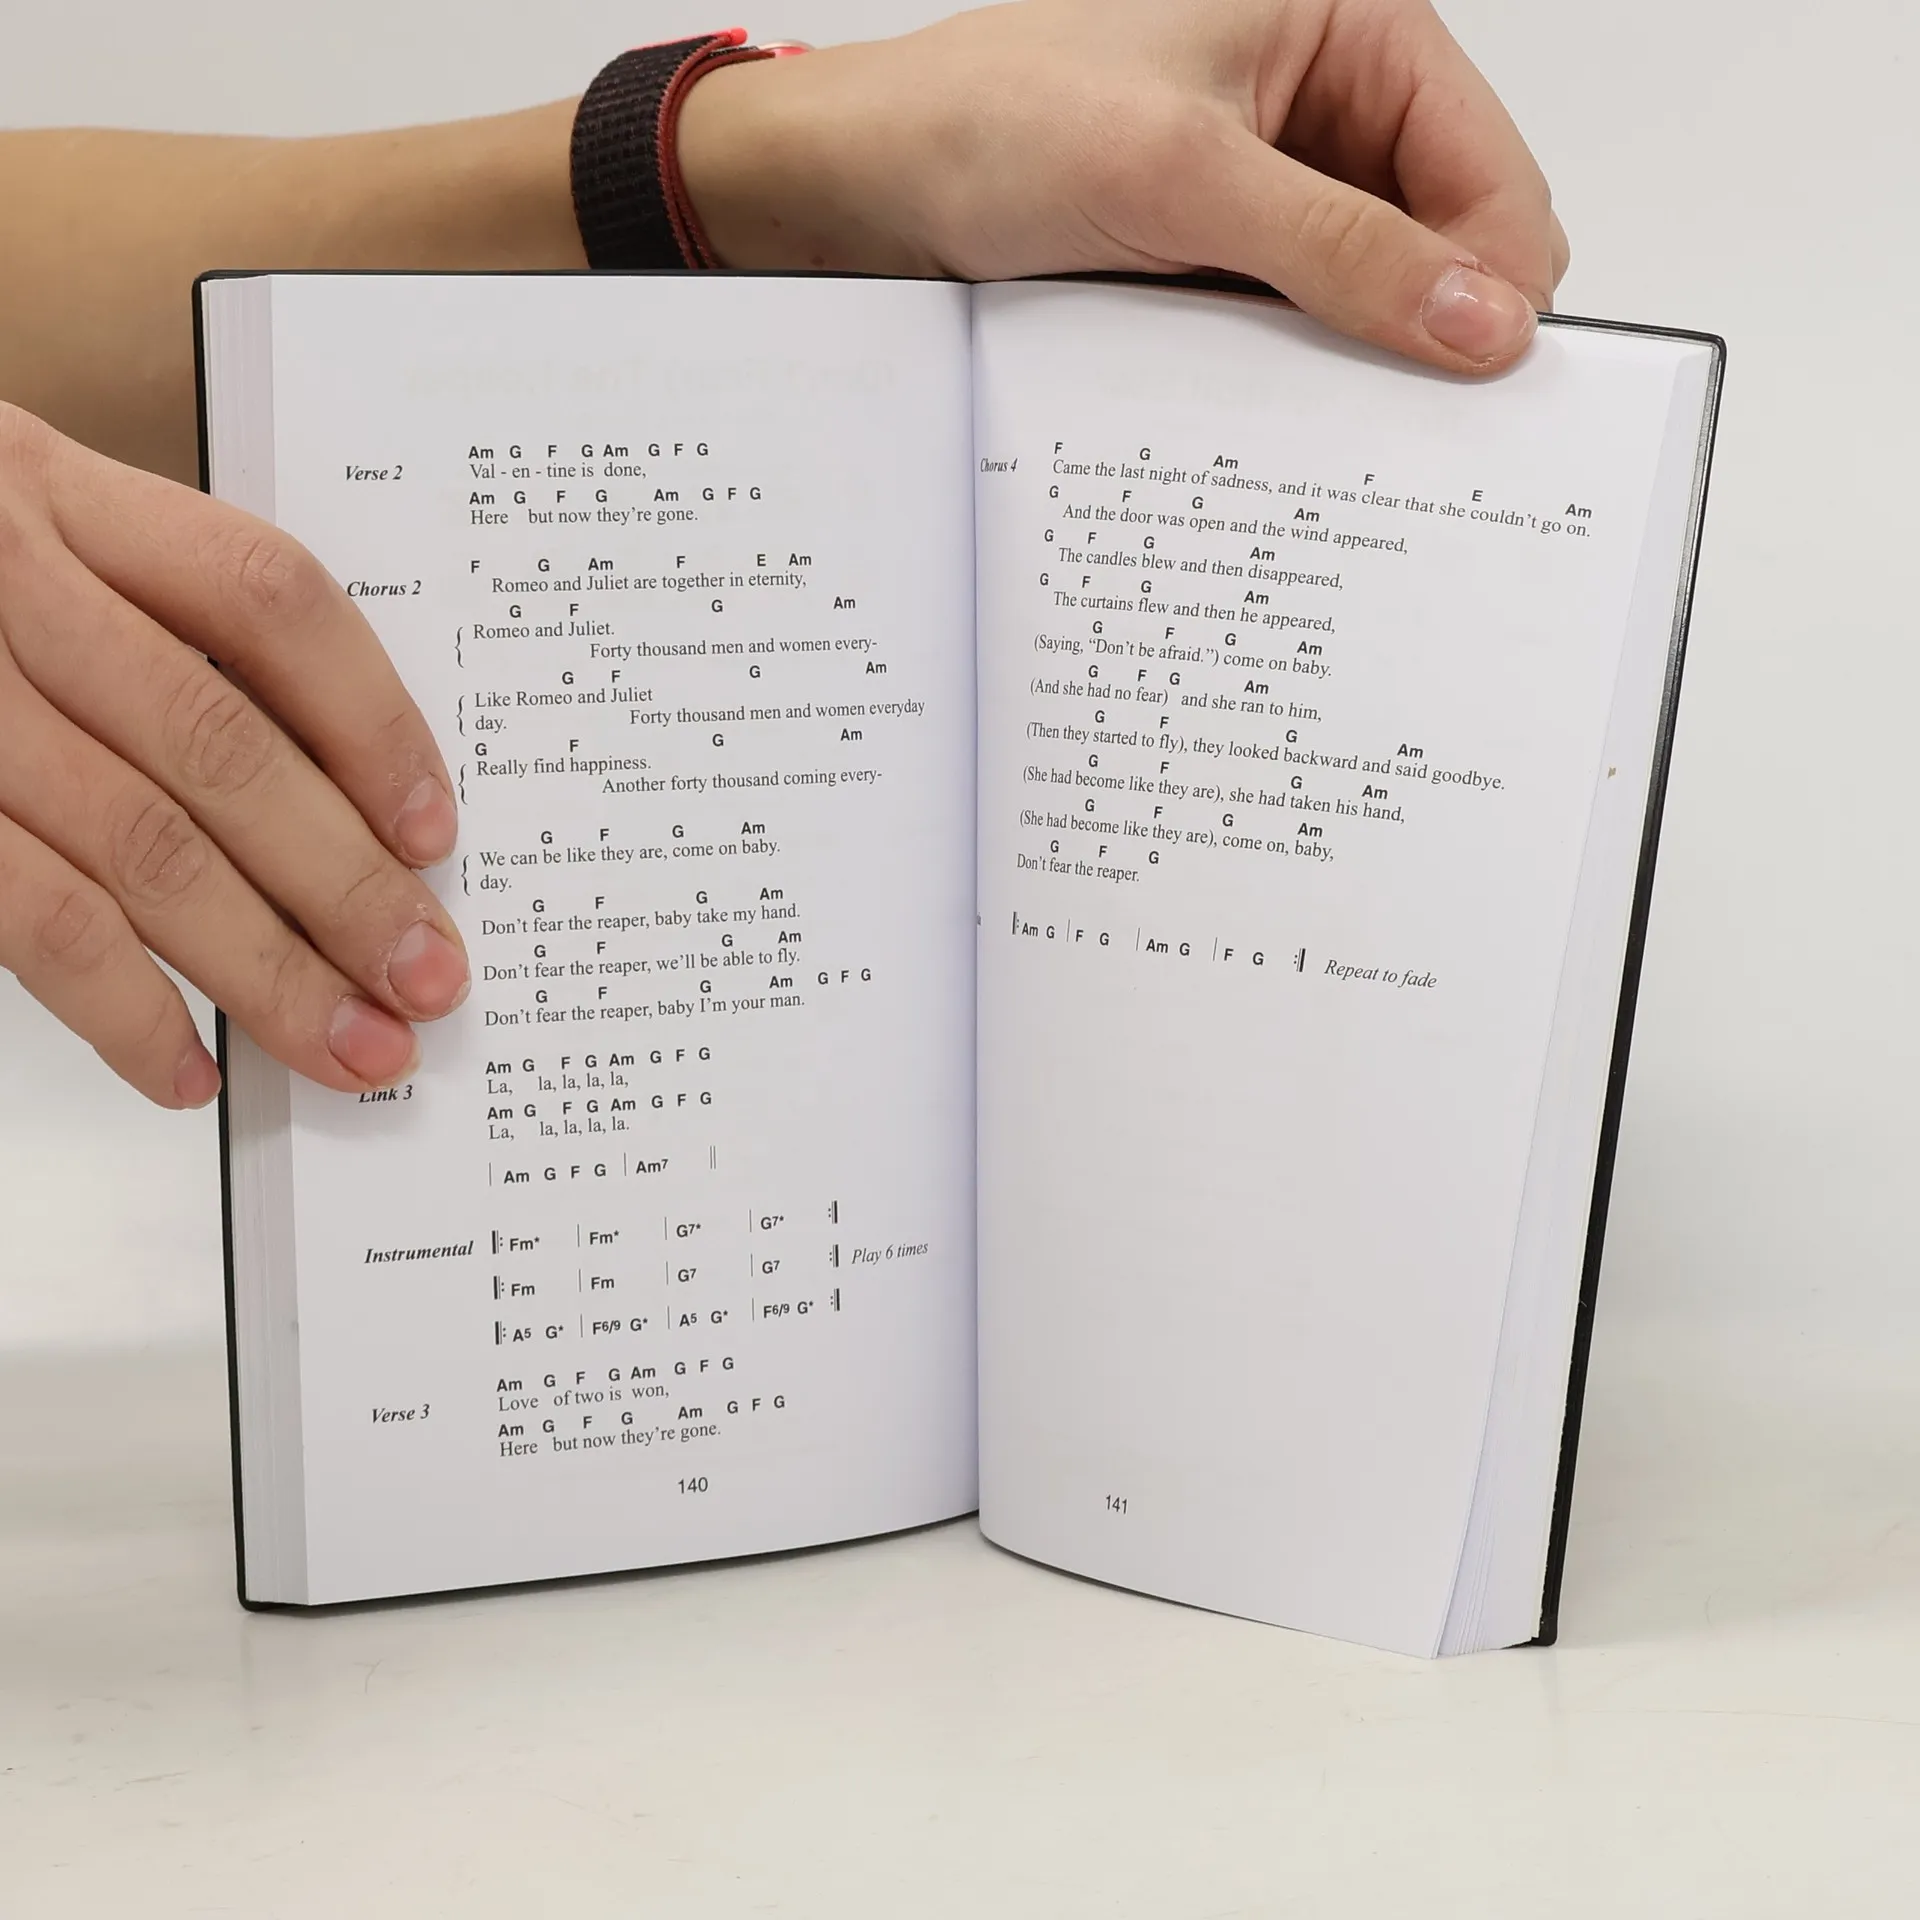 Verse 2
Am G F G Am G F G
Val - en - tine is done,
Am G F G Am G F G
Here but now they’re gone.
Chorus 2
F G Am F E Am
Romeo and Juliet are together in eternity,
G F G Am
Romeo and Juliet.
Forty thousand men and women every-
G F G Am
Like Romeo and Juliet
day. Forty thousand men and women everyday
G F G Am
Really find happiness.
Another forty thousand coming every-
G F G Am
We can be like they are, come on baby.
day.
G F G Am
Don’t fear the reaper, baby take my hand.
G F G Am
Don’t fear the reaper, we’ll be able to fly.
G F G Am G F G
Don’t fear the reaper, baby I’m your man.
Link 3
Am G F G Am G F G
La, la, la, la, la,
Am G F G Am G F G
La, la, la, la, la.
| Am G F G | Am7 ||
Instrumental
‖: Fm* | Fm* | G7* | G7* :‖
‖: Fm | Fm | G7 | G7 :‖ Play 6 times
‖: A5 G* | F6/9 G* | A5 G* | F6/9 G* :‖
Verse 3
Am G F G Am G F G
Love of two is won,
Am G F G Am G F G
Here but now they’re gone.
140
Chorus 4
F G Am F E Am
Came the last night of sadness, and it was clear that she couldn’t go on.
G F G Am
And the door was open and the wind appeared,
G F G Am
The candles blew and then disappeared,
G F G Am
The curtains flew and then he appeared,
G F G Am
(Saying, “Don’t be afraid.”) come on baby.
G F G Am
(And she had no fear) and she ran to him,
G F G Am
(Then they started to fly), they looked backward and said goodbye.
G F G Am
(She had become like they are), she had taken his hand,
G F G Am
(She had become like they are), come on, baby,
G F G
Don’t fear the reaper.
‖: Am G | F G | Am G | F G :‖ Repeat to fade
141